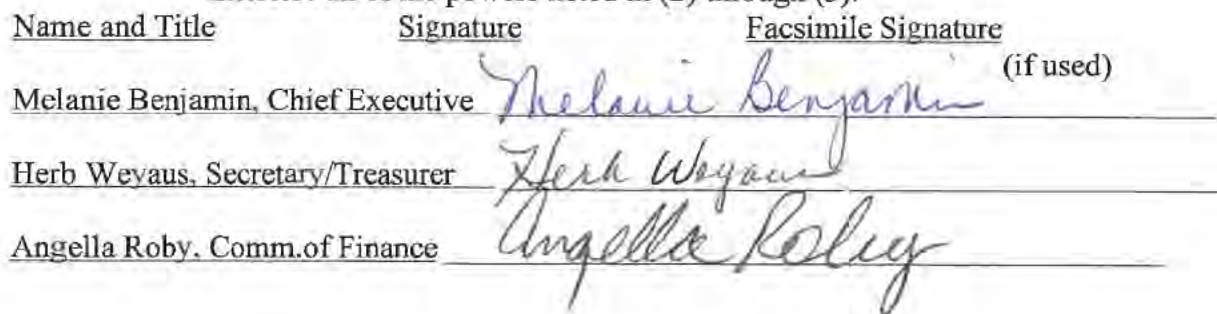 exercise all of the powers listed in (2) through (5).
Name and Title Signature Facsimile Signature
(if used)
Melanie Benjamin, Chief Executive Melanie Benjamin
Herb Weyaus, Secretary/Treasurer Herb Weyaus
Angella Roby, Comm.of Finance Angella Roby